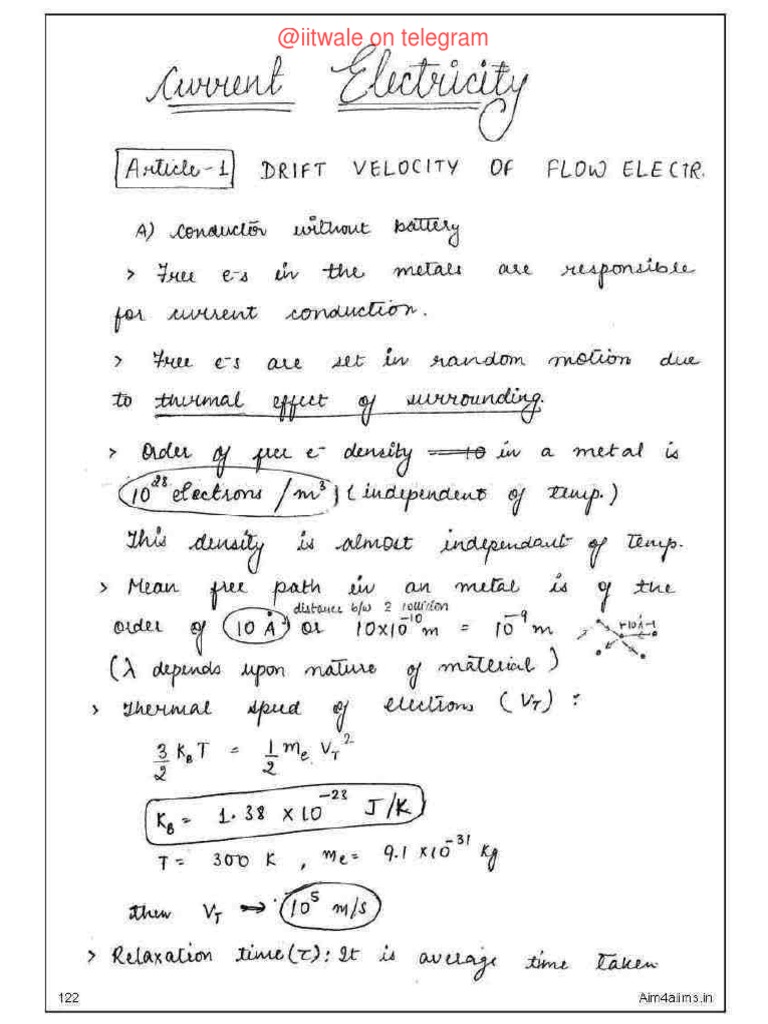 @iitwale on telegram
Current Electricity
Article-1 DRIFT VELOCITY OF FLOW ELECTR.
A) Conductor without battery
> Free e-s in the metals are responsible
for current conduction.
> Free e-s are set in random motion due
to thermal effect of surrounding.
> Order of free e⁻ density 10 in a metal is
10²⁸ electrons /m³ (independent of temp.)
This density is almost independant of Temp.
> Mean free path in an metal is of the
distance b/w 2 collision
order of 10 Å or 10×10⁻¹⁰ m = 10⁻⁹ m
(λ depends upon nature of material)
> Thermal speed of electrons (V_T) :
3/2 K_B T = 1/2 m_e V_T²
K_B = 1.38 × 10⁻²³ J/K
T = 300 K , m_e = 9.1 × 10⁻³¹ Kg
then V_T → 10⁵ m/s
> Relaxation time(τ): It is average time taken
122 Aim4aiims.in